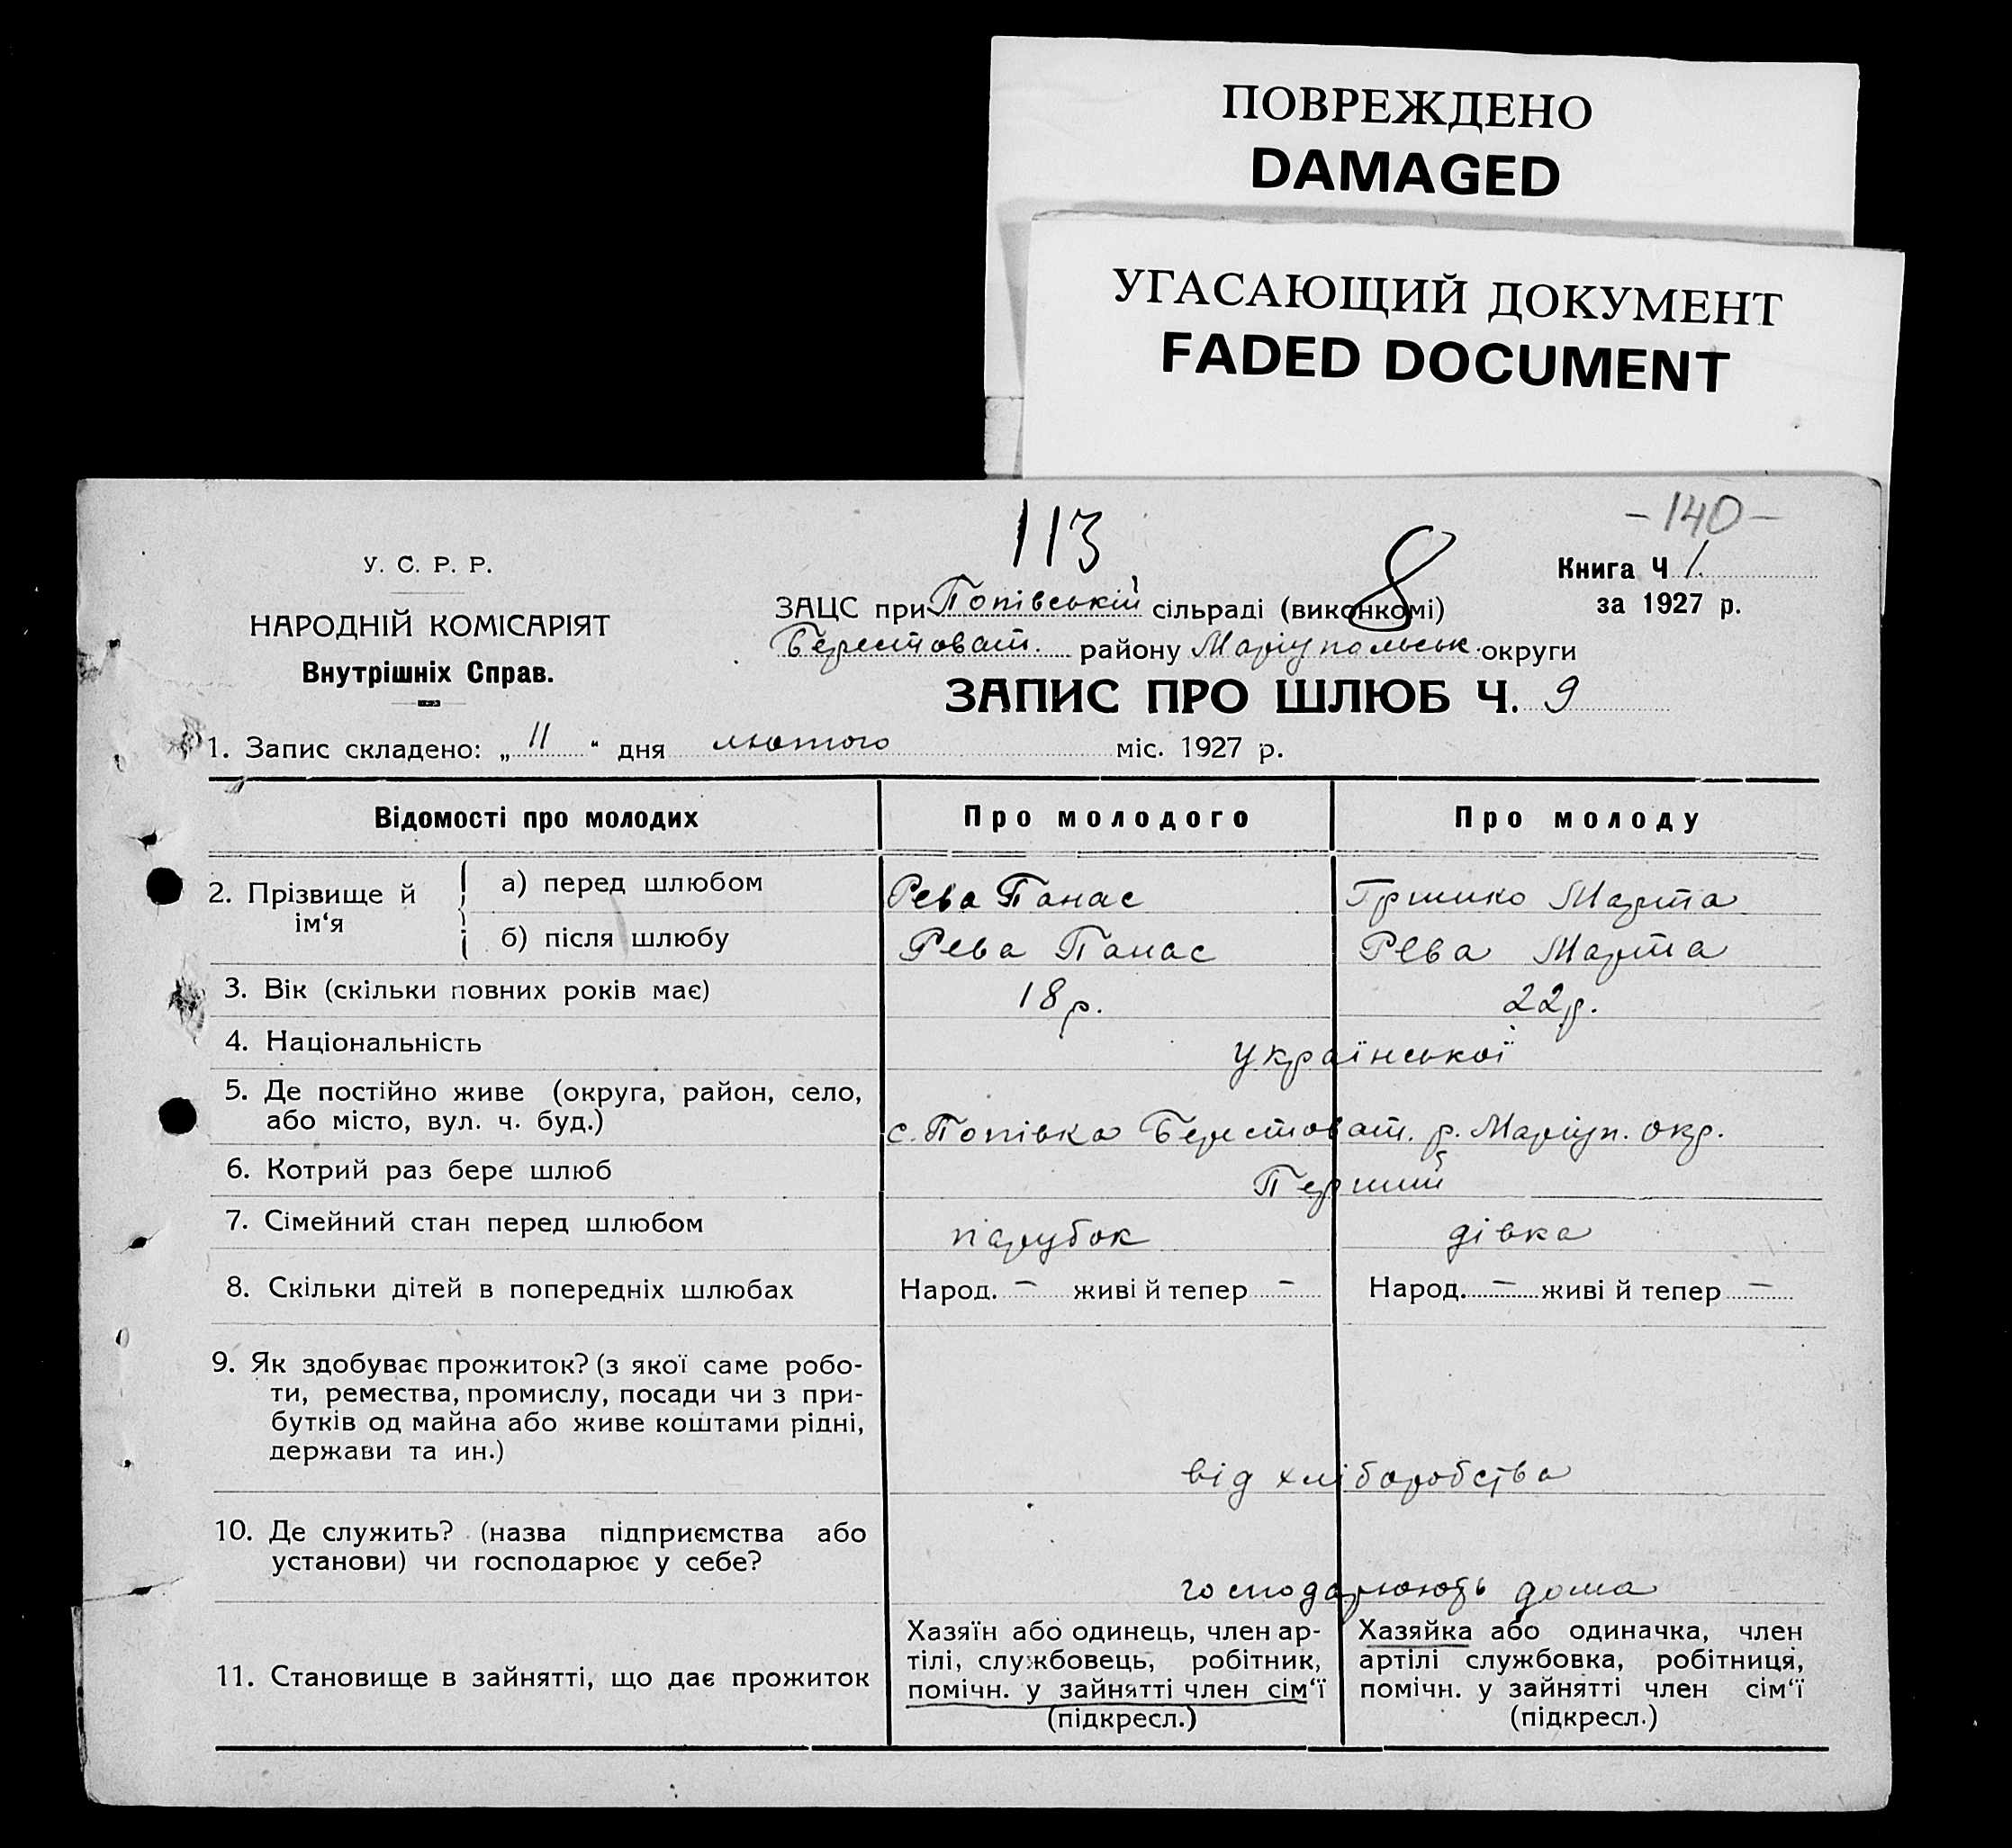 ПОВРЕЖДЕНО
DAMAGED
УГАСАЮЩИЙ ДОКУМЕНТ
FADED DOCUMENT
113
8
-140-
У. С. Р. Р.
НАРОДНІЙ КОМІСАРІЯТ
Внутрішніх Справ.
Книга Ч 1.
за 1927 р.
ЗАЦС при Попівській сільраді (виконкомі)
Берестоват. району Маріупольськ округи
ЗАПИС ПРО ШЛЮБ Ч. 9
1. Запис складено: „ 11 “ дня лютого міс. 1927 р.
Відомості про молодих Про молодого Про молоду
2. Прізвище й ім‘я
а) перед шлюбом Рева Панас Гришко Марта
б) після шлюбу Рева Панас Рева Марта
3. Вік (скільки повних років має) 18 р. 22 р.
4. Національність української
5. Де постійно живе (округа, район, село,
або місто, вул. ч. буд.) с. Попівка Берестоват. р. Маріуп. окр.
6. Котрий раз бере шлюб Перший
7. Сімейний стан перед шлюбом парубок дівка
8. Скільки дітей в попередніх шлюбах Народ. — живі й тепер — Народ. — живі й тепер —
9. Як здобуває прожиток? (з якої саме робо-
ти, ремества, промислу, посади чи з при-
бутків од майна або живе коштами рідні,
держави та ин.)
від хліборобства
10. Де служить? (назва підприємства або
установи) чи господарює у себе?
господарюють дома
11. Становище в зайнятті, що дає прожиток
Хазяїн або одинець, член ар-
тілі, службовець, робітник,
помічн. у зайнятті член сім‘ї
(підкресл.)
Хазяйка або одиначка, член
артілі службовка, робітниця,
помічн. у зайнятті член сім‘ї
(підкресл.)